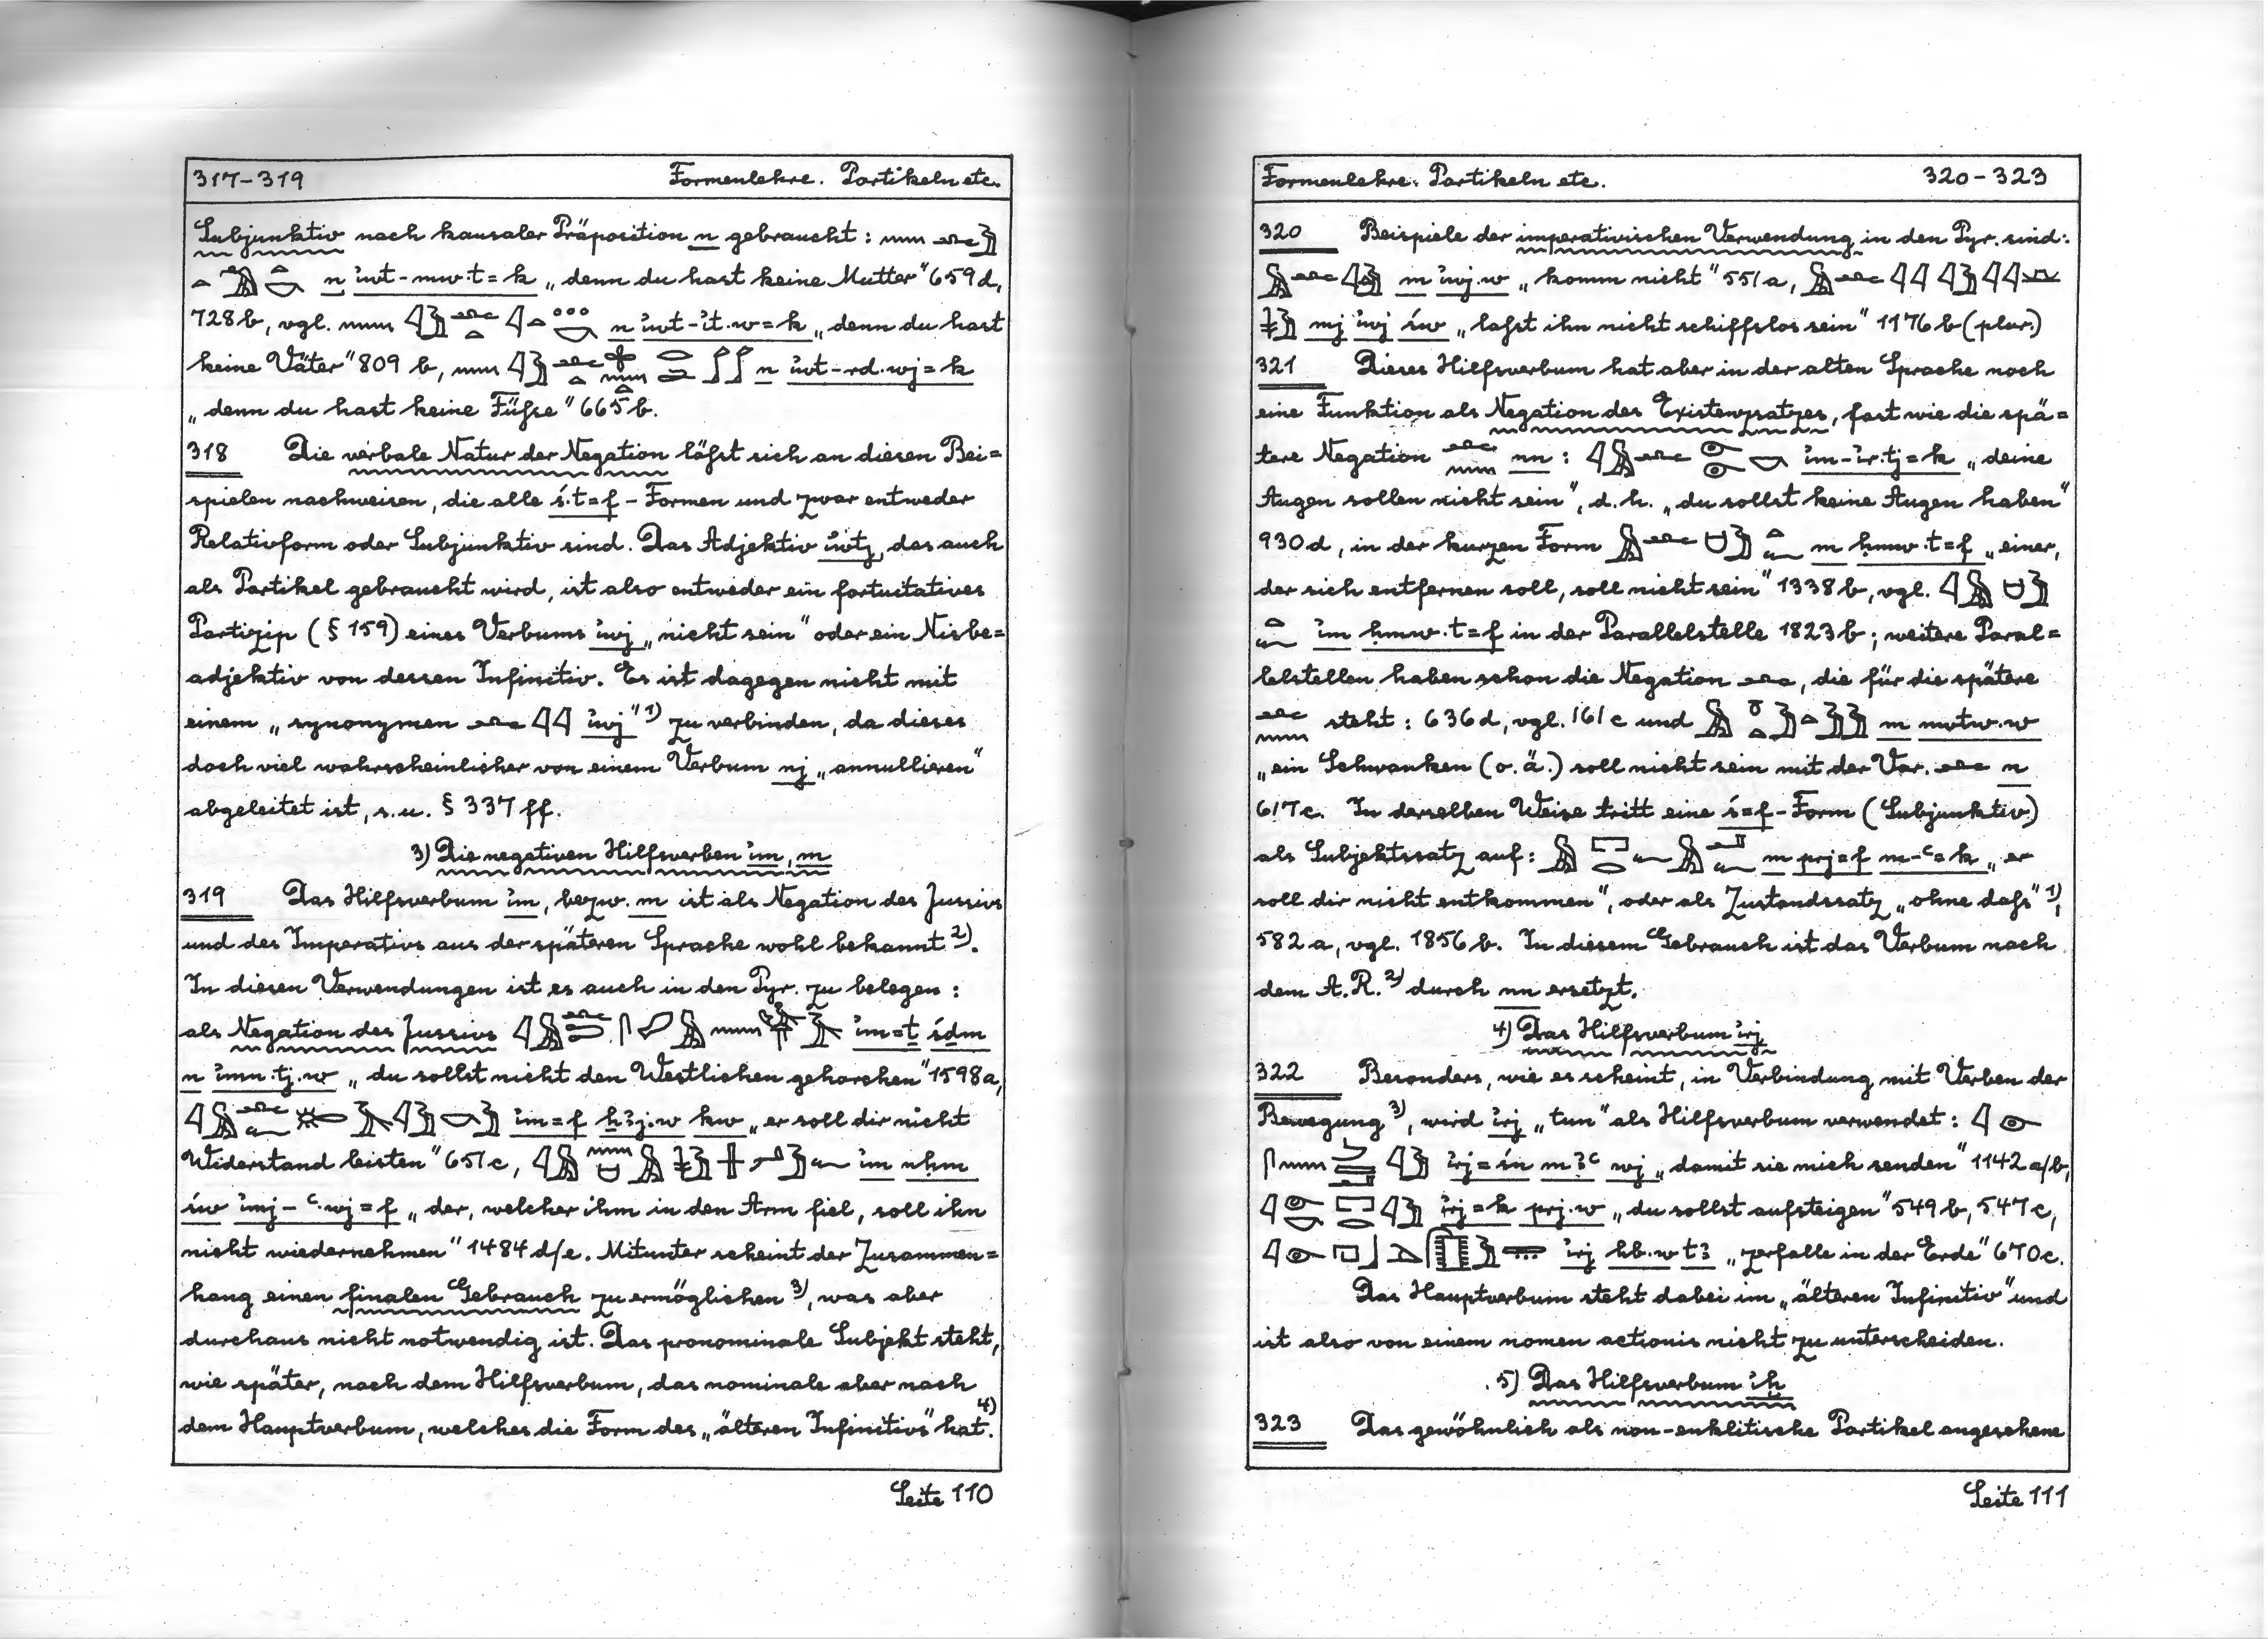 317-319 Formenlehre. Partikeln etc.
Subjunktiv nach kausaler Präposition n gebraucht:
n ỉwt-mw.t=k „denn du hast keine Mutter" 659d,
728b, vgl. n ỉwt-ỉt.w=k „denn du hast
keine Väter" 809 b, n ỉwt-rd.wj=k
„denn du hast keine Füße" 665b.
318 Die verbale Natur der Negation läßt sich an diesen Bei=
spielen nachweisen, die alle ś.t=f-Formen und zwar entweder
Relativform oder Subjunktiv sind. Das Adjektiv ỉwtj, das auch
als Partikel gebraucht wird, ist also entweder ein fortuitatives
Partizip (§ 159) eines Verbums ỉwj „nicht sein" oder ein Nisbe=
adjektiv von dessen Infinitiv. Es ist dagegen nicht mit
einem „synonymen ỉwj" 1) zu verbinden, da dieses
doch viel wahrscheinlicher von einem Verbum nj „annullieren"
abgeleitet ist, s.u. § 337 ff.
3) Die negativen Hilfsverben ỉm, m
319 Das Hilfsverbum ỉm, bezw. m ist als Negation des Jussivs
und des Imperativs aus der späteren Sprache wohl bekannt 2).
In diesen Verwendungen ist es auch in den Pyr. zu belegen:
als Negation des Jussivs ỉm=t śdm
n ỉmn.tj.w „du sollst nicht den Westlichen gehorchen" 1598a,
ỉm=f ḫꜣj.w kw „er soll dir nicht
Widerstand leisten" 651c, ỉm nḥm
św ỉmj-ꜥ.wj=f „der, welcher ihm in den Arm fiel, soll ihn
nicht wiedernehmen" 1484 d/e. Mitunter scheint der Zusammen=
hang einen finalen Gebrauch zu ermöglichen 3), was aber
durchaus nicht notwendig ist. Das pronominale Subjekt steht,
wie später, nach dem Hilfsverbum, das nominale aber nach
dem Hauptverbum, welches die Form des „älteren Infinitivs" hat. 4)
Seite 110
Formenlehre. Partikeln etc. 320-323
320 Beispiele der imperativischen Verwendung in den Pyr. sind:
m ỉwj.w „komm nicht" 551a,
mj ỉwj św „laßt ihn nicht schiffslos sein" 1176b (plur.)
321 Dieses Hilfsverbum hat aber in der alten Sprache noch
eine Funktion als Negation des Existenzsatzes, fast wie die spä=
tere Negation nn: ỉm-ỉr.tj=k „deine
Augen sollen nicht sein", d.h. „du sollst keine Augen haben"
930d, in der kurzen Form m ḥmw.t=f „einer,
der sich entfernen soll, soll nicht sein" 1338b, vgl.
ỉm ḥmw.t=f in der Parallelstelle 1823b; weitere Paral=
lelstellen haben schon die Negation , die für die spätere
steht: 636d, vgl. 161c und m nwtw.w
„ein Schwanken (o.ä.) soll nicht sein mit der Var. n
617c. In derselben Weise tritt eine ś=f-Form (Subjunktiv)
als Subjektssatz auf: m prj=f m-ꜥ=k „er
soll dir nicht entkommen", oder als Zustandssatz „ohne daß" 1),
582a, vgl. 1856b. In diesem Gebrauch ist das Verbum nach
dem A.R. 2) durch nn ersetzt.
4) Das Hilfsverbum ỉrj
322 Besonders, wie es scheint, in Verbindung mit Verben der
Bewegung 3), wird ỉrj „tun" als Hilfsverbum verwendet:
ỉrj=śn mꜣꜥ wj „damit sie mich senden" 1142 a/b,
ỉrj=k prj.w „du sollst aufsteigen" 549b, 547c,
ỉrj hb.w tꜣ „zerfalle in der Erde" 670c.
Das Hauptverbum steht dabei im „älteren Infinitiv" und
ist also von einem nomen actionis nicht zu unterscheiden.
5) Das Hilfsverbum ỉḫ
323 Das gewöhnlich als non-enklitische Partikel angesehene
Seite 111